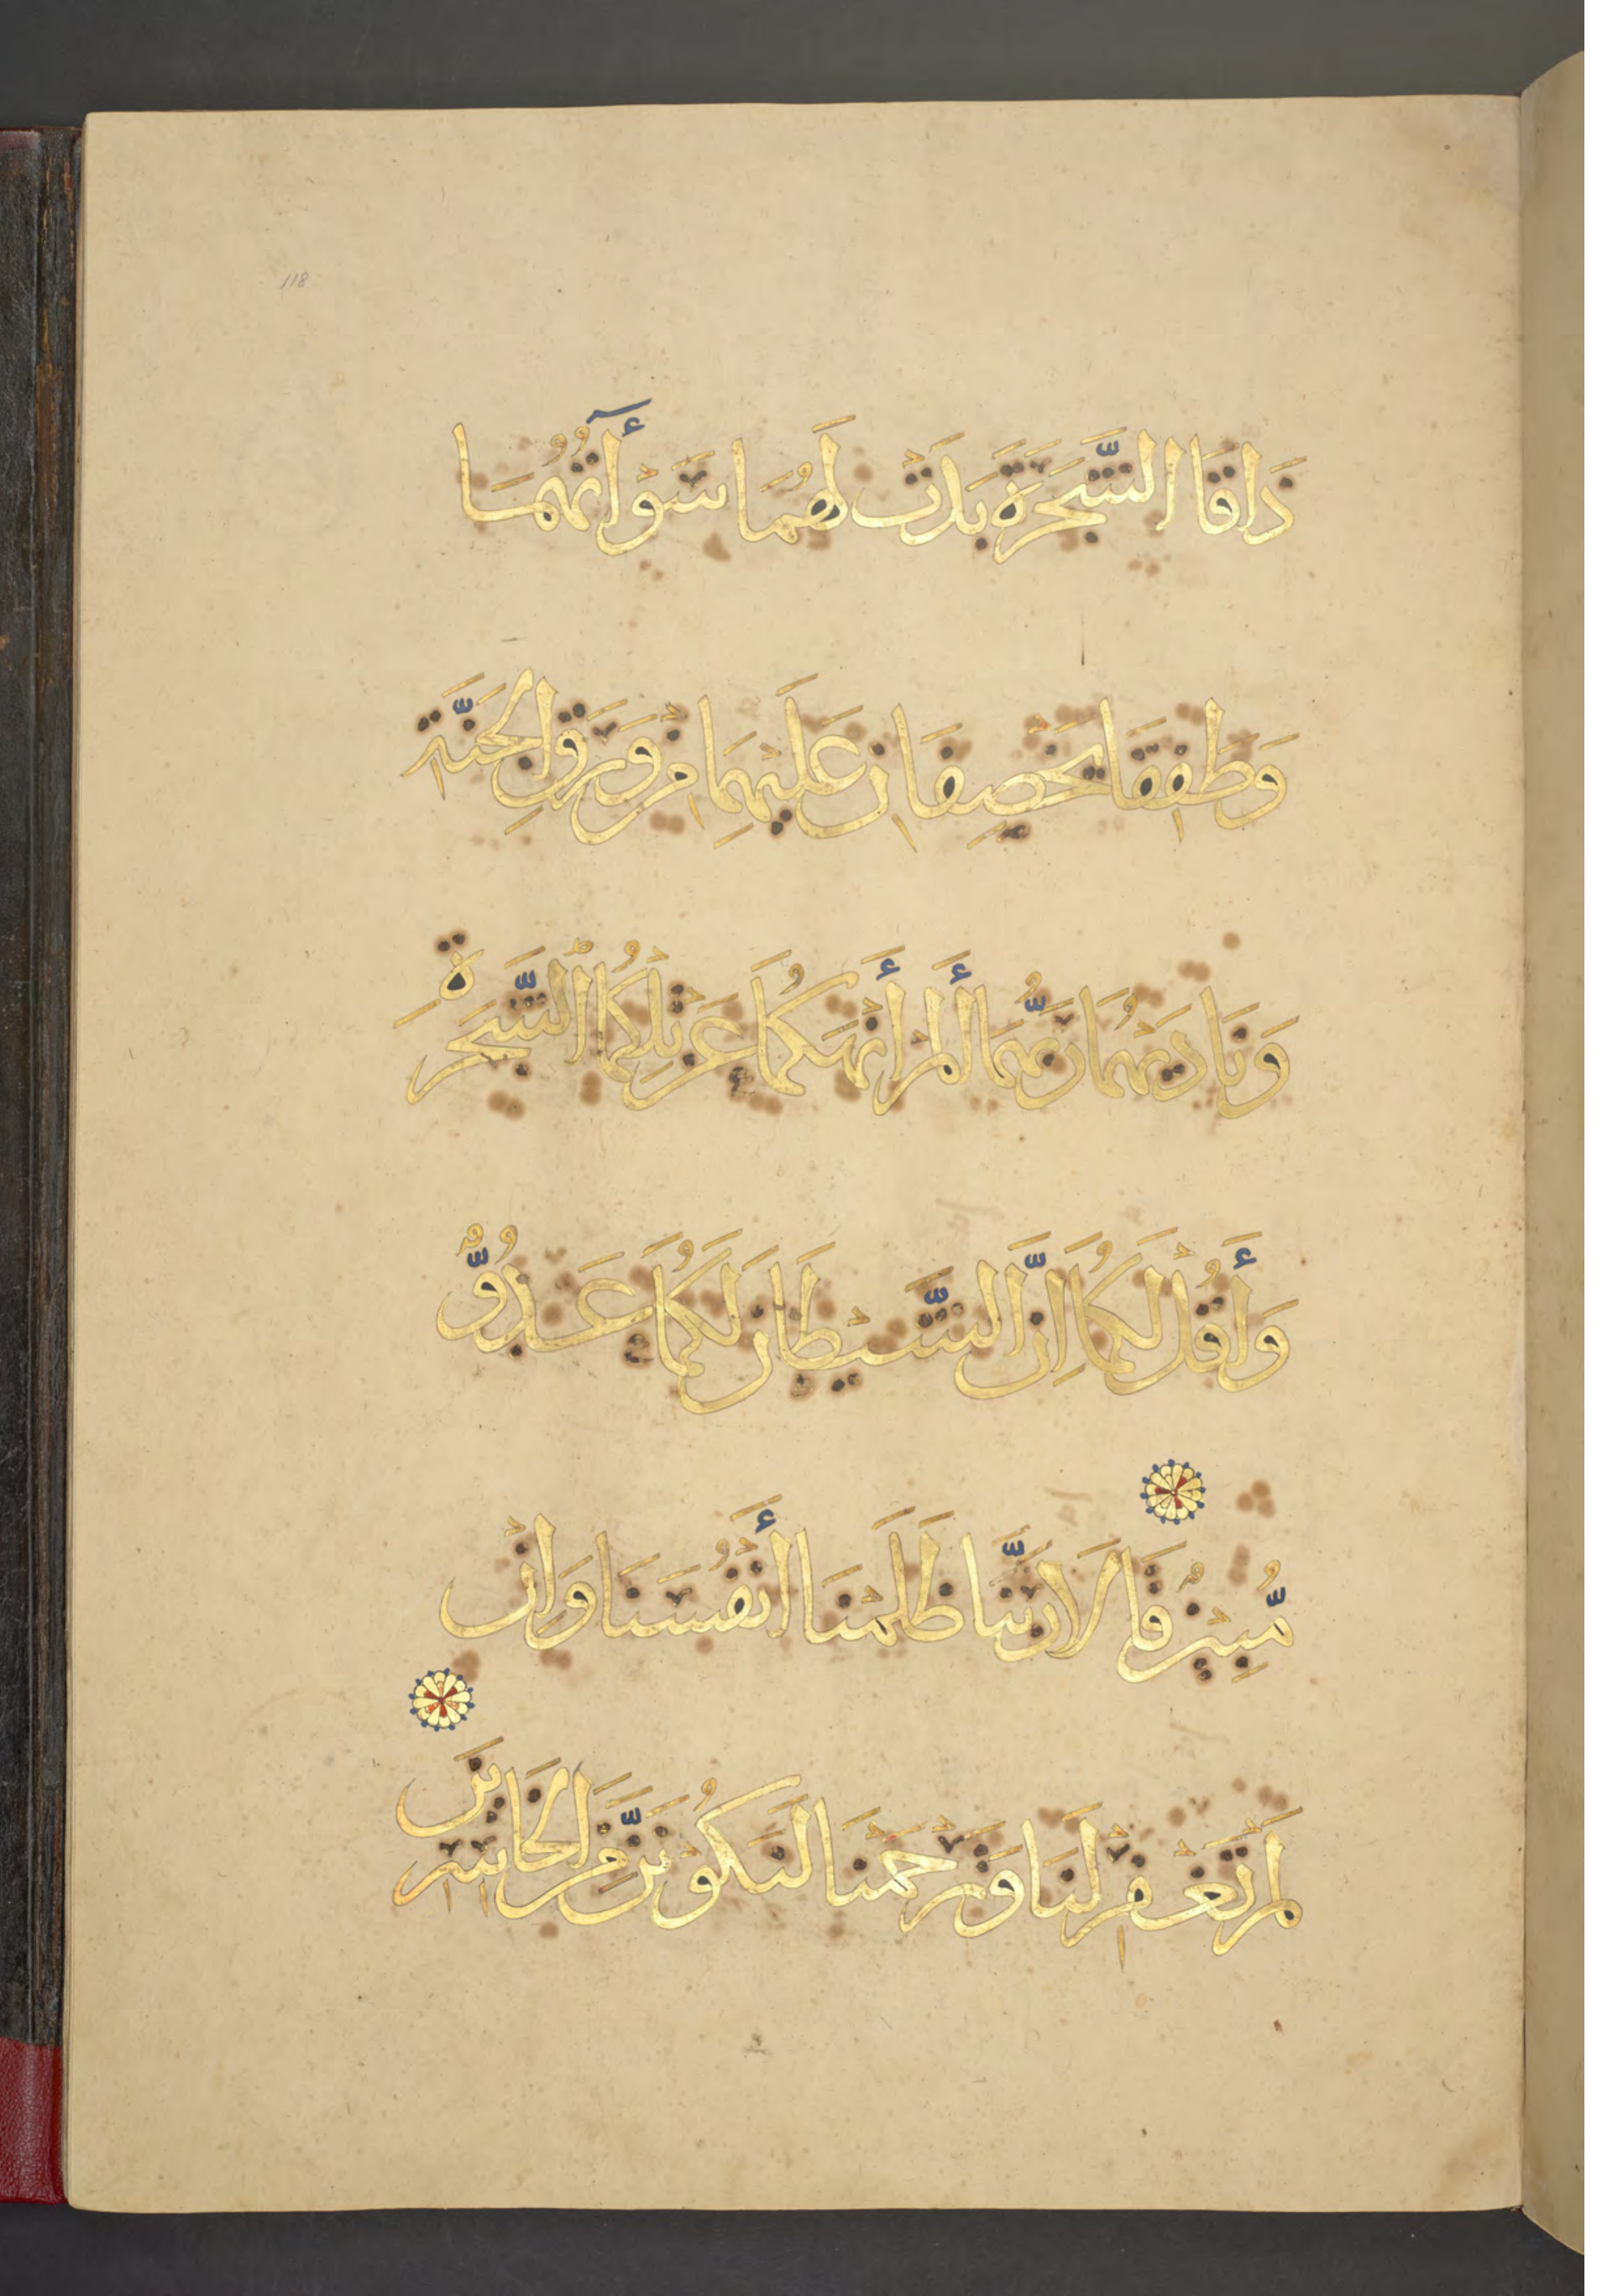 118
ذَاقَا الشَّجَرَةَ بَدَتْ لَهُمَا سَوْأٓتُهُمَا
وَطَفِقَا يَخْصِفَانِ عَلَيْهِمَا مِنْ وَرَقِ الْجَنَّةِ
وَنَادَيهُمَا رَبُّهُمَا أَلَمْ أَنْهَكُمَا عَنْ تِلْكُمَا الشَّجَرَةِ
وَأَقُلْ لَكُمَا اِنَّ الشَّيْطَانَ لَكُمَا عَدُوٌّ
مُّبِيْنٌ قَالَا رَبَّنَا ظَلَمْنَا أَنْفُسَنَا وَاِنْ
لَمْ تَغْفِرْ لَنَا وَتَرْحَمْنَا لَنَكُوْنَنَّ مِنَ الْخَاسِرِينَ